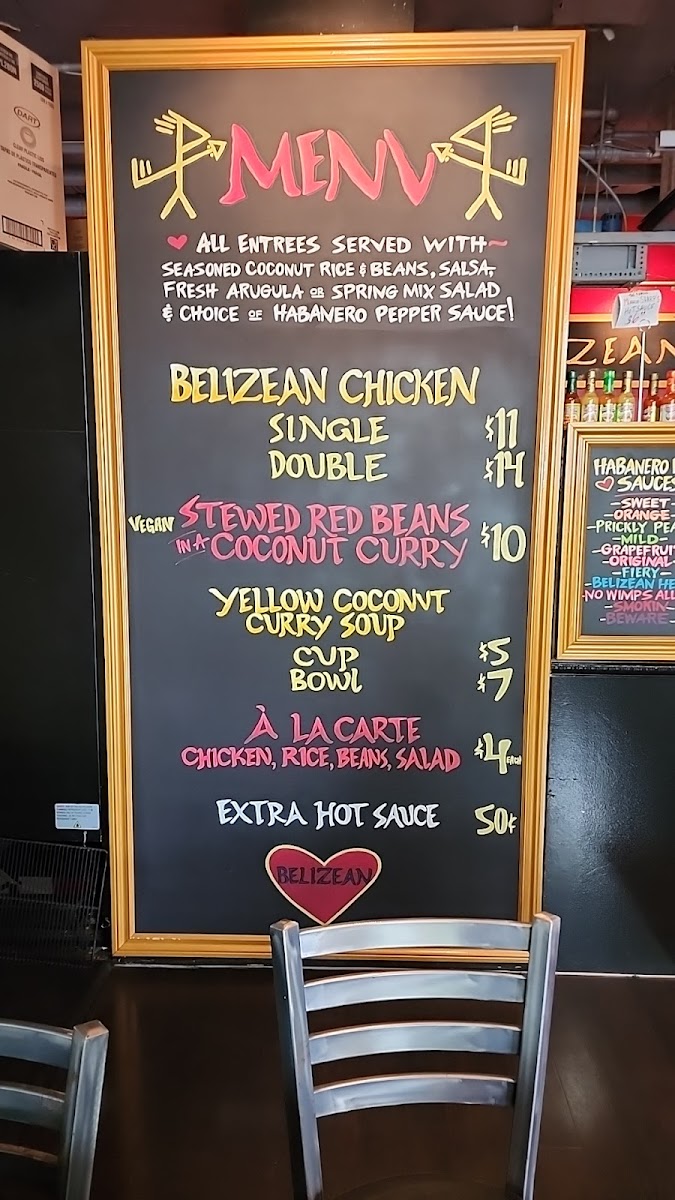 MENU
ALL ENTREES SERVED WITH~
SEASONED COCONUT RICE & BEANS, SALSA,
FRESH ARUGULA OR SPRING MIX SALAD
& CHOICE OF HABANERO PEPPER SAUCE!
BELIZEAN CHICKEN
SINGLE $11
DOUBLE $14
VEGAN STEWED RED BEANS
IN A COCONUT CURRY $10
YELLOW COCONUT
CURRY SOUP
CUP $5
BOWL $7
À LA CARTE
CHICKEN, RICE, BEANS, SALAD $4 EACH
EXTRA HOT SAUCE 50¢
BELIZEAN
DART
ZEAN
HABANERO
SAUCES
-SWEET
ORANGE-
-PRICKLY PEA
-MILD-
-GRAPEFRUIT
-ORIGINAL-
-FIERY-
-BELIZEAN HE
-NO WIMPS ALL
-SMOKIN
-BEWARE-